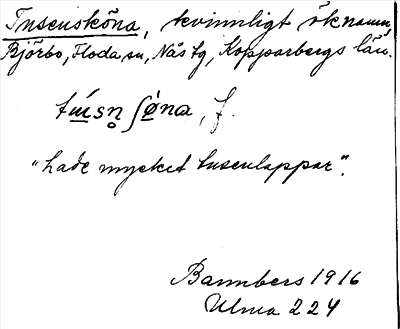 Tusensköna, kvinnligt öknamn
Björbo, Floda sn, Nås tg, Kopparbergs län.
tɯ́sn̥ ʃǿna, f.
"hade mycket tusenlappar".
Bannbers 1916
Ulma 224